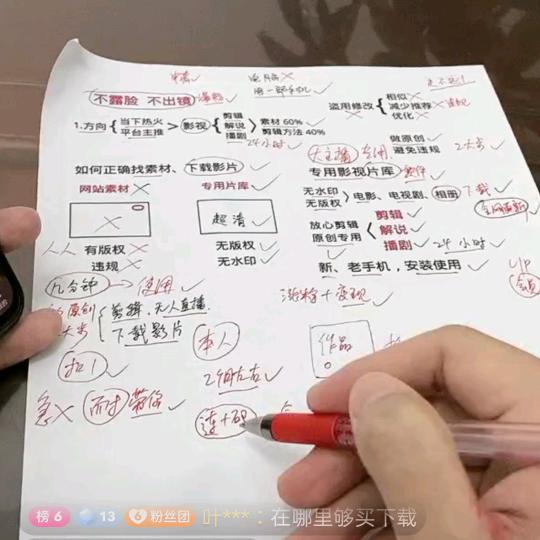 电脑×
用一部手机✓
不露脸 不出镜
盗用修改 相似×
减少推荐
优化×
1.方向 当下热火 平台主推 影视 剪辑 解说 播剧 素材 60%
剪辑方法 40%
24小时✓
做原创✓
避免违规
大主播 专用
2大步
如何正确找素材、下载影片
专用影视片库
网站素材× 专用片库
无水印 无版权 电影、电视剧、相册 下载✓
超清✓
放心剪辑 原创专用 剪辑✓
解说✓
播剧✓ 24小时✓
人人 有版权× 无版权✓
违规× 无水印✓
新、老手机,安装使用✓
VIP
几分钟 使用✓
涨粉+变现✓
原创 剪辑、无人直播.
下载影片✓
大步
本人✓
作品
扣1✓
2个月左右
急× 而才 带你✓
连+码
榜 6 13 6 粉丝团 叶***:在哪里够买下载